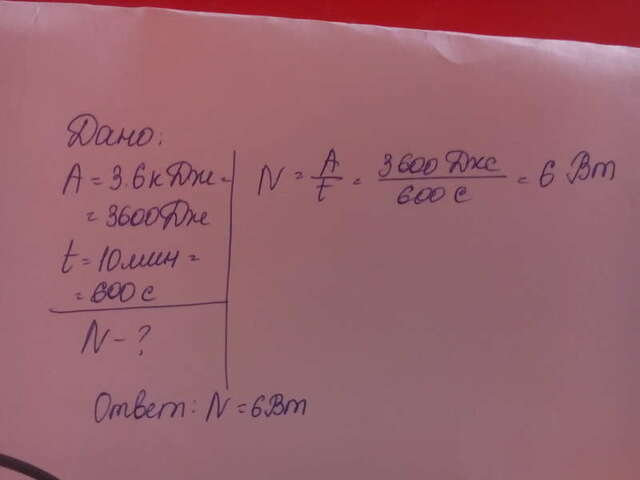 Дано:
A = 3.6 кДж =
= 3600 Дж
t = 10 мин =
= 600 с
N - ?
N = A/t = 3600 Дж/600 с = 6 Вт
Ответ: N = 6 Вт